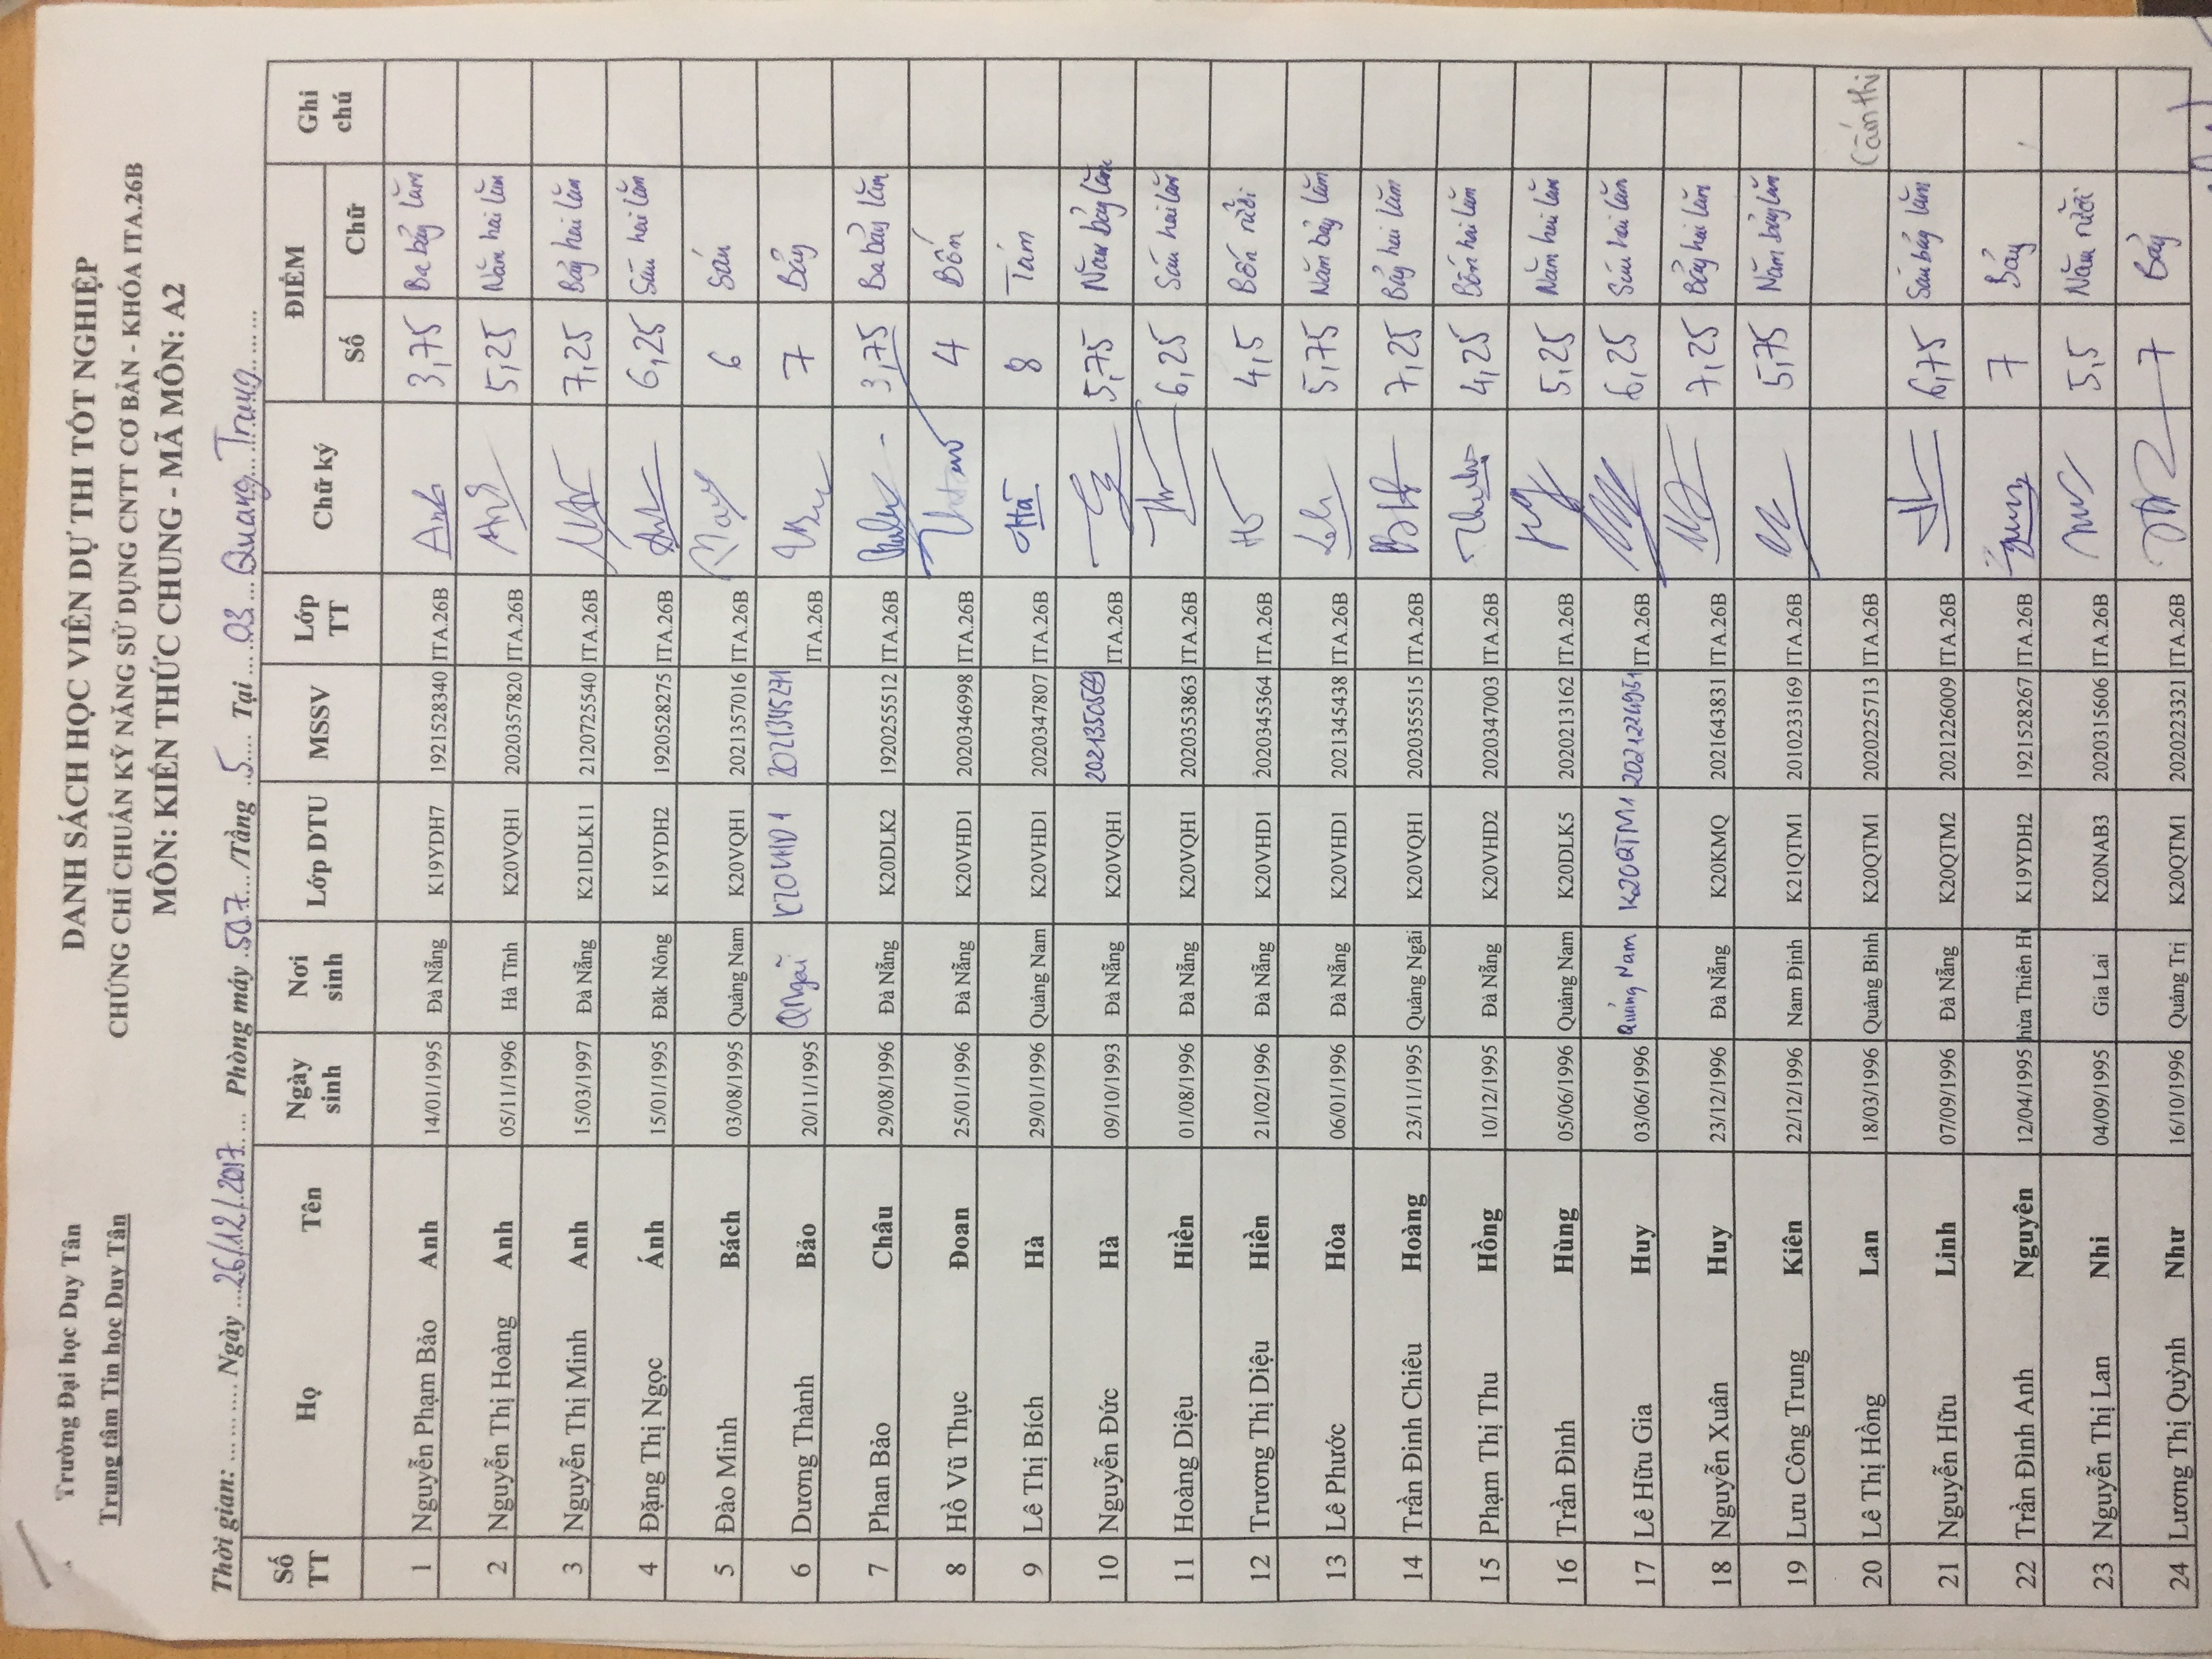 Trường Đại học Duy Tân
Trung tâm Tin học Duy Tân
DANH SÁCH HỌC VIÊN DỰ THI TỐT NGHIỆP
CHỨNG CHỈ CHUẨN KỸ NĂNG SỬ DỤNG CNTT CƠ BẢN - KHÓA ITA.26B
MÔN: KIẾN THỨC CHUNG - MÃ MÔN: A2
Thời gian: .......... Ngày ...26/12/2017.... Phòng máy .507.../Tầng .5.... Tại ....03....Quang...Trung......
Số TT Họ Tên Ngày sinh Nơi sinh Lớp DTU MSSV Lớp TT Chữ ký ĐIỂM Số Chữ Ghi chú
1 Nguyễn Phạm Bảo Anh 14/01/1995 Đà Nẵng K19YDH7 1921528340 ITA.26B Anh 3,75 Ba bảy lăm
2 Nguyễn Thị Hoàng Anh 05/11/1996 Hà Tĩnh K20VQH1 2020357820 ITA.26B 5,25 Năm hai lăm
3 Nguyễn Thị Minh Anh 15/03/1997 Đà Nẵng K21DLK11 2120725540 ITA.26B 7,25 Bảy hai lăm
4 Đặng Thị Ngọc Ánh 15/01/1995 Đăk Nông K19YDH2 1920528275 ITA.26B 6,25 Sáu hai lăm
5 Đào Minh Bách 03/08/1995 Quảng Nam K20VQH1 2021357016 ITA.26B 6 Sáu
6 Dương Thành Bảo 20/11/1995 QNgãi K20VHD1 2021345271 ITA.26B 7 Bảy
7 Phan Bảo Châu 29/08/1996 Đà Nẵng K20DLK2 1920255512 ITA.26B 3,75 Ba bảy lăm
8 Hồ Vũ Thục Đoan 25/01/1996 Đà Nẵng K20VHD1 2020346998 ITA.26B 4 Bốn
9 Lê Thị Bích Hà 29/01/1996 Quảng Nam K20VHD1 2020347807 ITA.26B Hà 8 Tám
10 Nguyễn Đức Hà 09/10/1993 Đà Nẵng K20VQH1 ITA.26B 5,75 Năm bảy lăm
11 Hoàng Diệu Hiền 01/08/1996 Đà Nẵng K20VQH1 2020353863 ITA.26B 6,25 Sáu hai lăm
12 Trương Thị Diệu Hiền 21/02/1996 Đà Nẵng K20VHD1 2020345364 ITA.26B 4,5 Bốn rưỡi
13 Lê Phước Hòa 06/01/1996 Đà Nẵng K20VHD1 2021345438 ITA.26B 5,75 Năm bảy lăm
14 Trần Đinh Chiêu Hoàng 23/11/1995 Quảng Ngãi K20VQH1 2020355515 ITA.26B 7,25 Bảy hai lăm
15 Phạm Thị Thu Hồng 10/12/1995 Đà Nẵng K20VHD2 2020347003 ITA.26B 4,25 Bốn hai lăm
16 Trần Đình Hùng 05/06/1996 Quảng Nam K20DLK5 2020213162 ITA.26B 5,25 Năm hai lăm
17 Lê Hữu Gia Huy 03/06/1996 Quảng Nam K20QTM1 ITA.26B 6,25 Sáu hai lăm
18 Nguyễn Xuân Huy 23/12/1996 Đà Nẵng K20KMQ 2021643831 ITA.26B 7,25 Bảy hai lăm
19 Lưu Công Trung Kiên 22/12/1996 Nam Định K21QTM1 2010233169 ITA.26B 5,75 Năm bảy lăm
20 Lê Thị Hồng Lan 18/03/1996 Quảng Bình K20QTM1 2020225713 ITA.26B Cấm thi
21 Nguyễn Hữu Linh 07/09/1996 Đà Nẵng K20QTM2 2021226009 ITA.26B 6,75 Sáu bảy lăm
22 Trần Đình Anh Nguyên 12/04/1995 hừa Thiên Hu K19YDH2 1921528267 ITA.26B 7 Bảy
23 Nguyễn Thị Lan Nhi 04/09/1995 Gia Lai K20NAB3 2020315606 ITA.26B 5,5 Năm rưỡi
24 Lương Thị Quỳnh Như 16/10/1996 Quảng Trị K20QTM1 2020223321 ITA.26B 7 Bảy